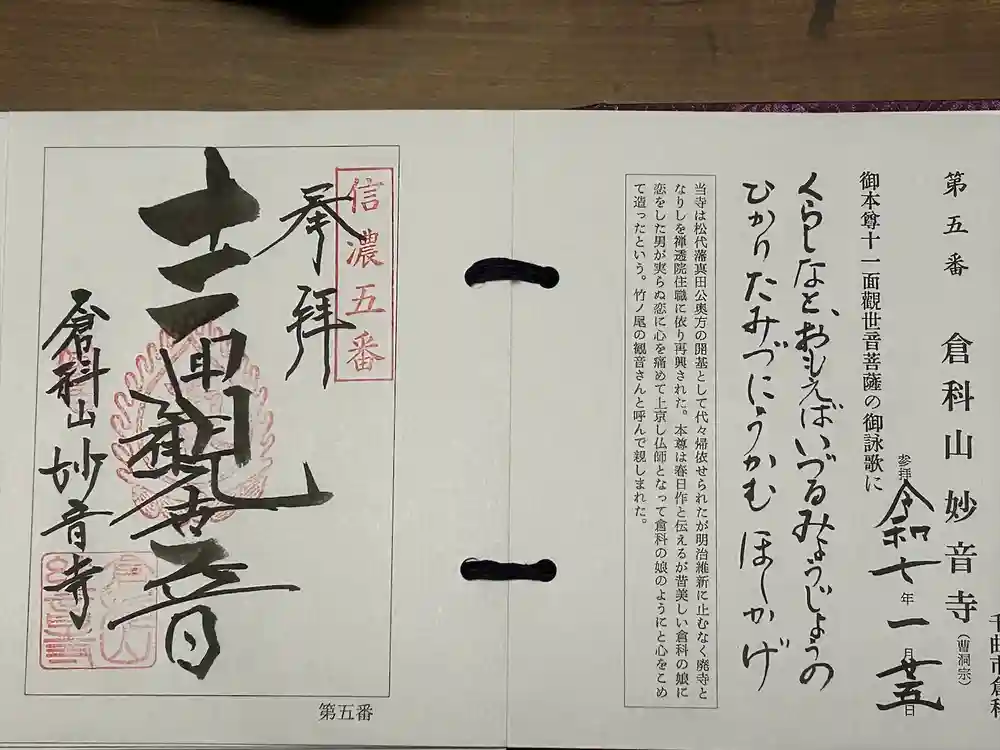 千曲市倉科
第五番　倉科山 妙音寺（曹洞宗）
参拝 令和七年一月廿五日
御本尊十一面觀世音菩薩の御詠歌に
くらしなと、おもえばいづるみょうじょうの
ひかりたみづにうかむ ほしかげ
当寺は松代藩真田公奥方の開基として代々帰依せられたが明治維新に止むなく廃寺と
なりしを禅透院住職に依り再興された。本尊は春日作と伝えるが昔美しい倉科の娘に
恋をした男が実らぬ恋に心を痛めて上京し仏師となって倉科の娘のようにと心をこめ
て造ったという。竹ノ尾の観音さんと呼んで親しまれた。
信濃五番
奉拝
十一面観世音
倉科山 妙音寺
第五番